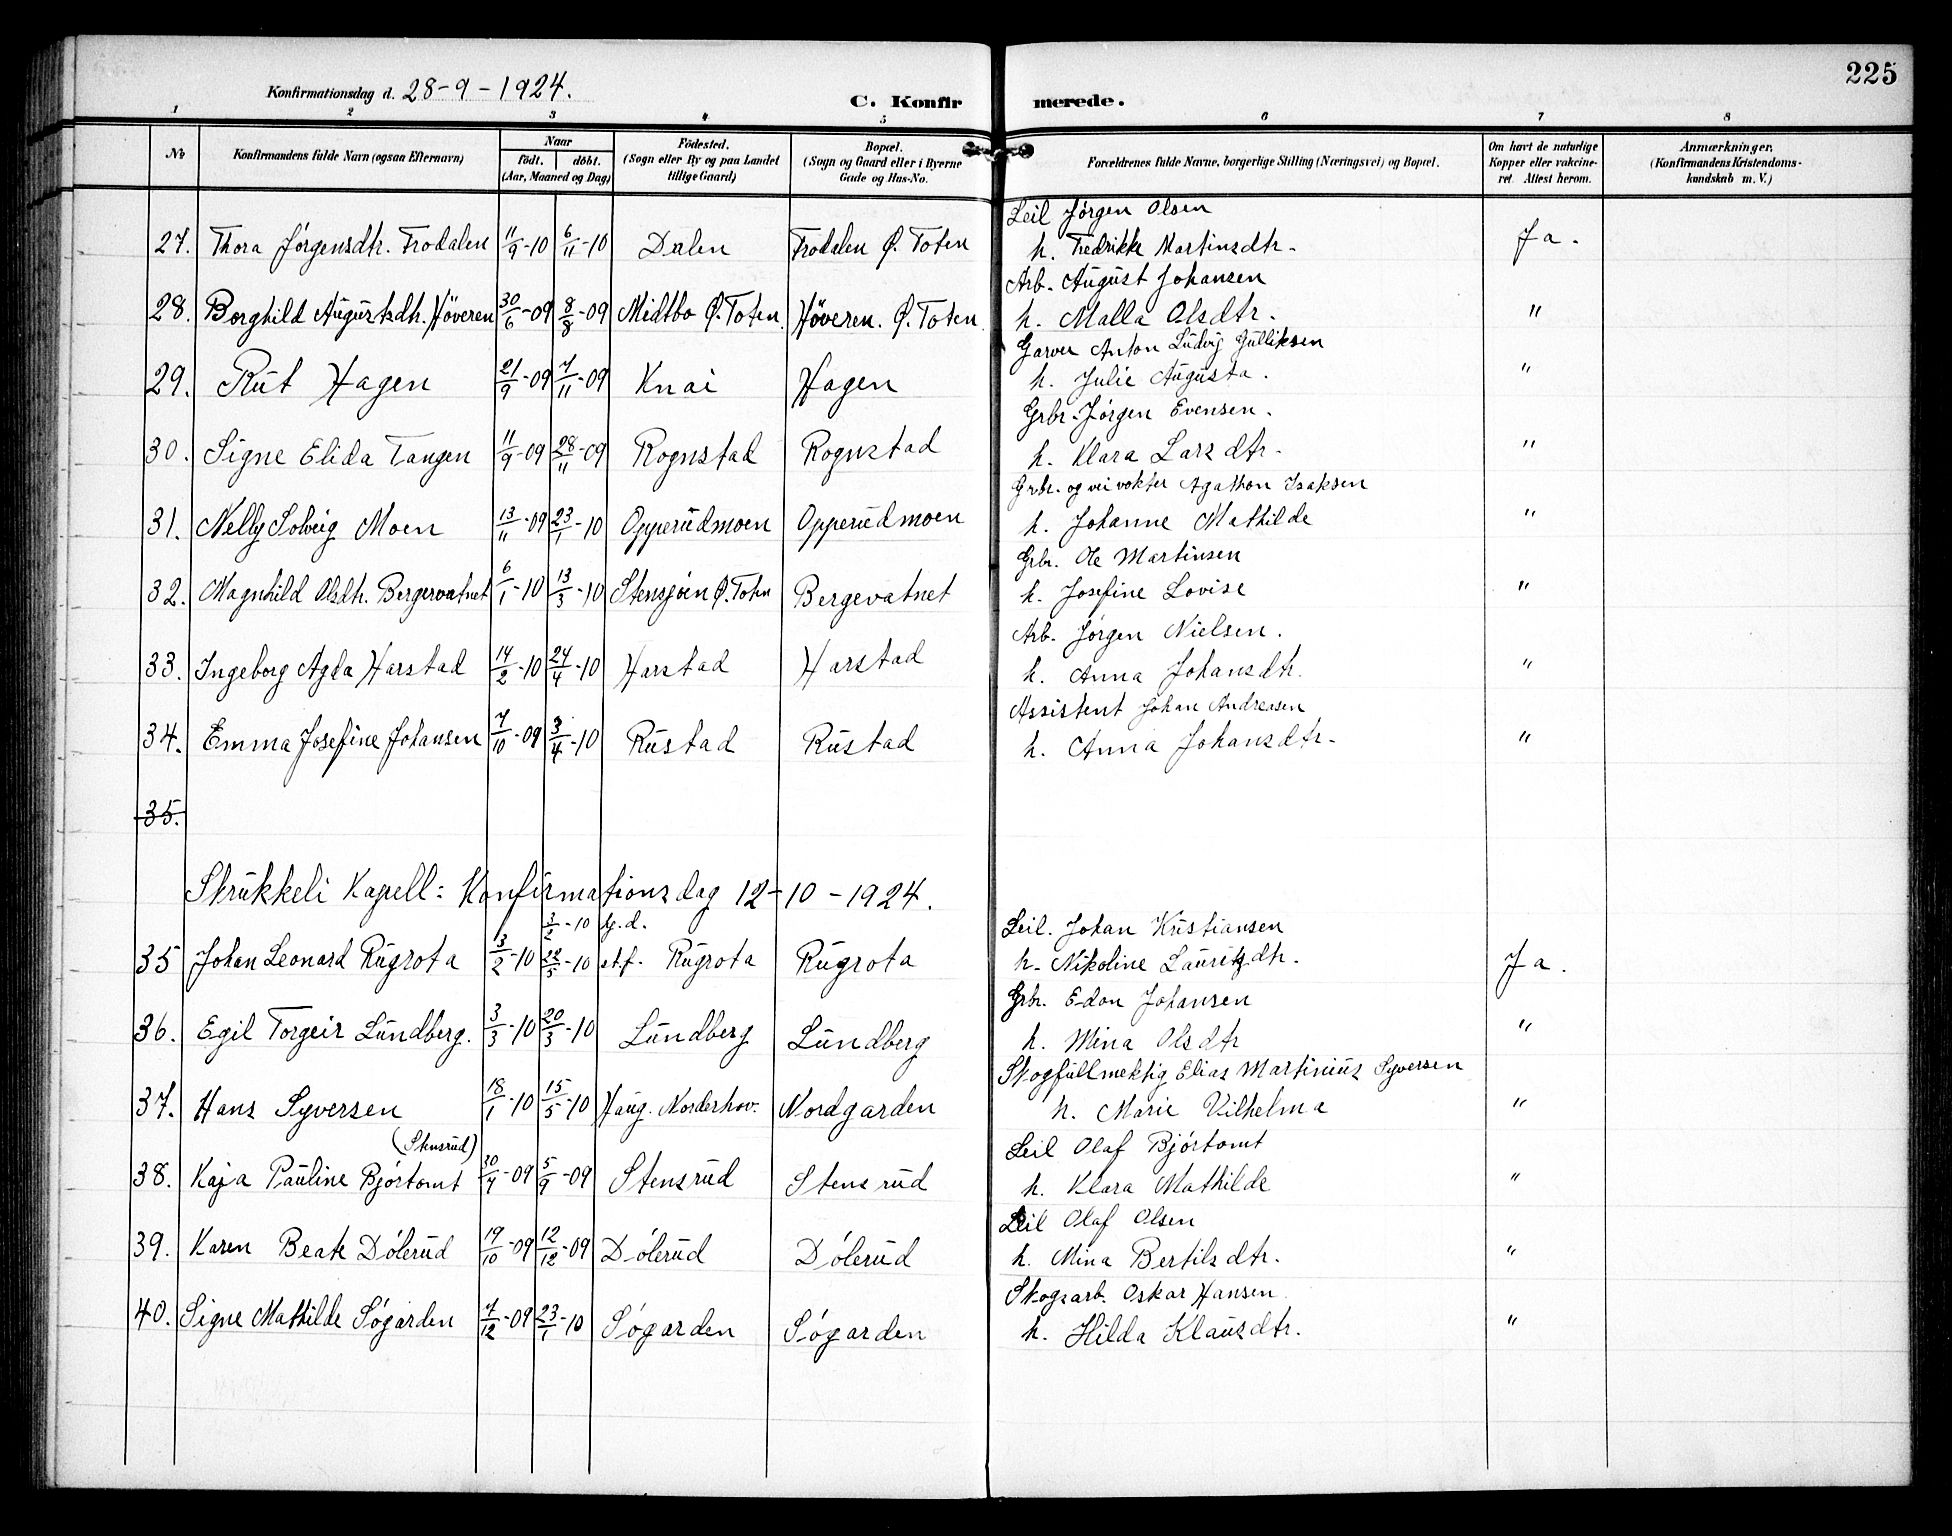 225
Konfirmationsdag d. 28-9-1924.
C. Konfirmerede.
1 2 3 4 5 6 7 8
No
Konfirmandens fulde Navn (ogsaa Efternavn)
Naar
födt. döbt.
(Aar, Maaned og Dag)
Födested.
(Sogn eller By og paa Landet
tillige Gaard)
Bopæl.
(Sogn og Gaard eller i Byerne
Gade og Hus-No.
Forældrenes fulde Navne, borgerlige Stilling (Næringsvei) og Bopæl.
Om havt de naturlige
Kopper eller vakcine-
ret. Attest herom.
Anmærkninger,
(Konfirmandens Kristendoms-
kundskab m. V.)
Leil Jørgen Olsen
27. Thora Jørgensdtr. Frodalen 11/9-10 6/11-10 Dalen Frodalen Ø. Toten h. Fredrikke Martinsdtr. Ja.
Arb. August Johansen
28. Borghild Augustsdtr. Höveren 30/6-09 8/8-09 Midtbo Ø. Toten. Höveren. Ø. Toten. h. Malla Olsdtr. "
Garver Anton Ludvig Gulliksen
29. Rut Hagen 21/9-09 7/11-09 Knai Hagen h. Julie Augusta. "
Grbr. Jørgen Evensen.
30. Signe Elida Tangen 11/9-09 28/11-09 Rognstad Rognstad h. Klara Larsdtr. "
Grbr. og veivokter Agathon Isaksen
31. Nelly Solveig Moen 13/11-09 23/1-10 Opperudmoen Opperudmoen h. Johanne Mathilde "
Grbr. Ole Martinsen
32. Magnhild Olsdtr. Bergervatnet 6/1-10 13/3-10 Stensjøen Ø. Toten Bergevatnet h. Josefine Lovise "
Arb. Jørgen Nielsen.
33. Ingeborg Agda Harstad 14/2-10 24/4-10 Harstad Harstad h. Anna Johansdtr. "
Assistent Johan Andreasen
34. Emma Josefine Johansen 7/10-09 3/4-10 Rustad Rustad h. Anna Johansdtr. "
35.
Strukkeli Kapell: Konfirmationsdag 12-10-1924.
3/2-10 hj.d. Leil. Johan Kristiansen
35 Johan Leonard Rugrota 3/2-10 22/5-10 st.f. Rugrota Rugrota h. Nikoline Lauritzdtr. Ja.
Grbr. Edon Johansen
36. Egil Torgeir Lundberg. 3/3-10 20/3-10 Lundberg Lundberg h. Mina Olsdtr "
Skogfullmektig Elias Martinius Syversen
37. Hans Syversen 18/1-10 15/5-10 Haug. Norderhov. Nordgarden h. Marie Vilhelma "
(Stensrud) Leil Olaf Bjørtomt
38. Kaja Pauline Bjørtomt 30/7-09 5/9-09 Stensrud Stensrud h. Klara Mathilde "
Leil Olaf Olsen
39. Karen Beate Dølerud 19/10-09 12/12-09 Dølerud Dølerud h. Mina Bertilsdtr. "
Skogsarb. Oskar Hansen
40. Signe Mathilde Søgarden 7/12-09 23/1-10 Søgarden Søgarden h. Hilda Klausdtr. "